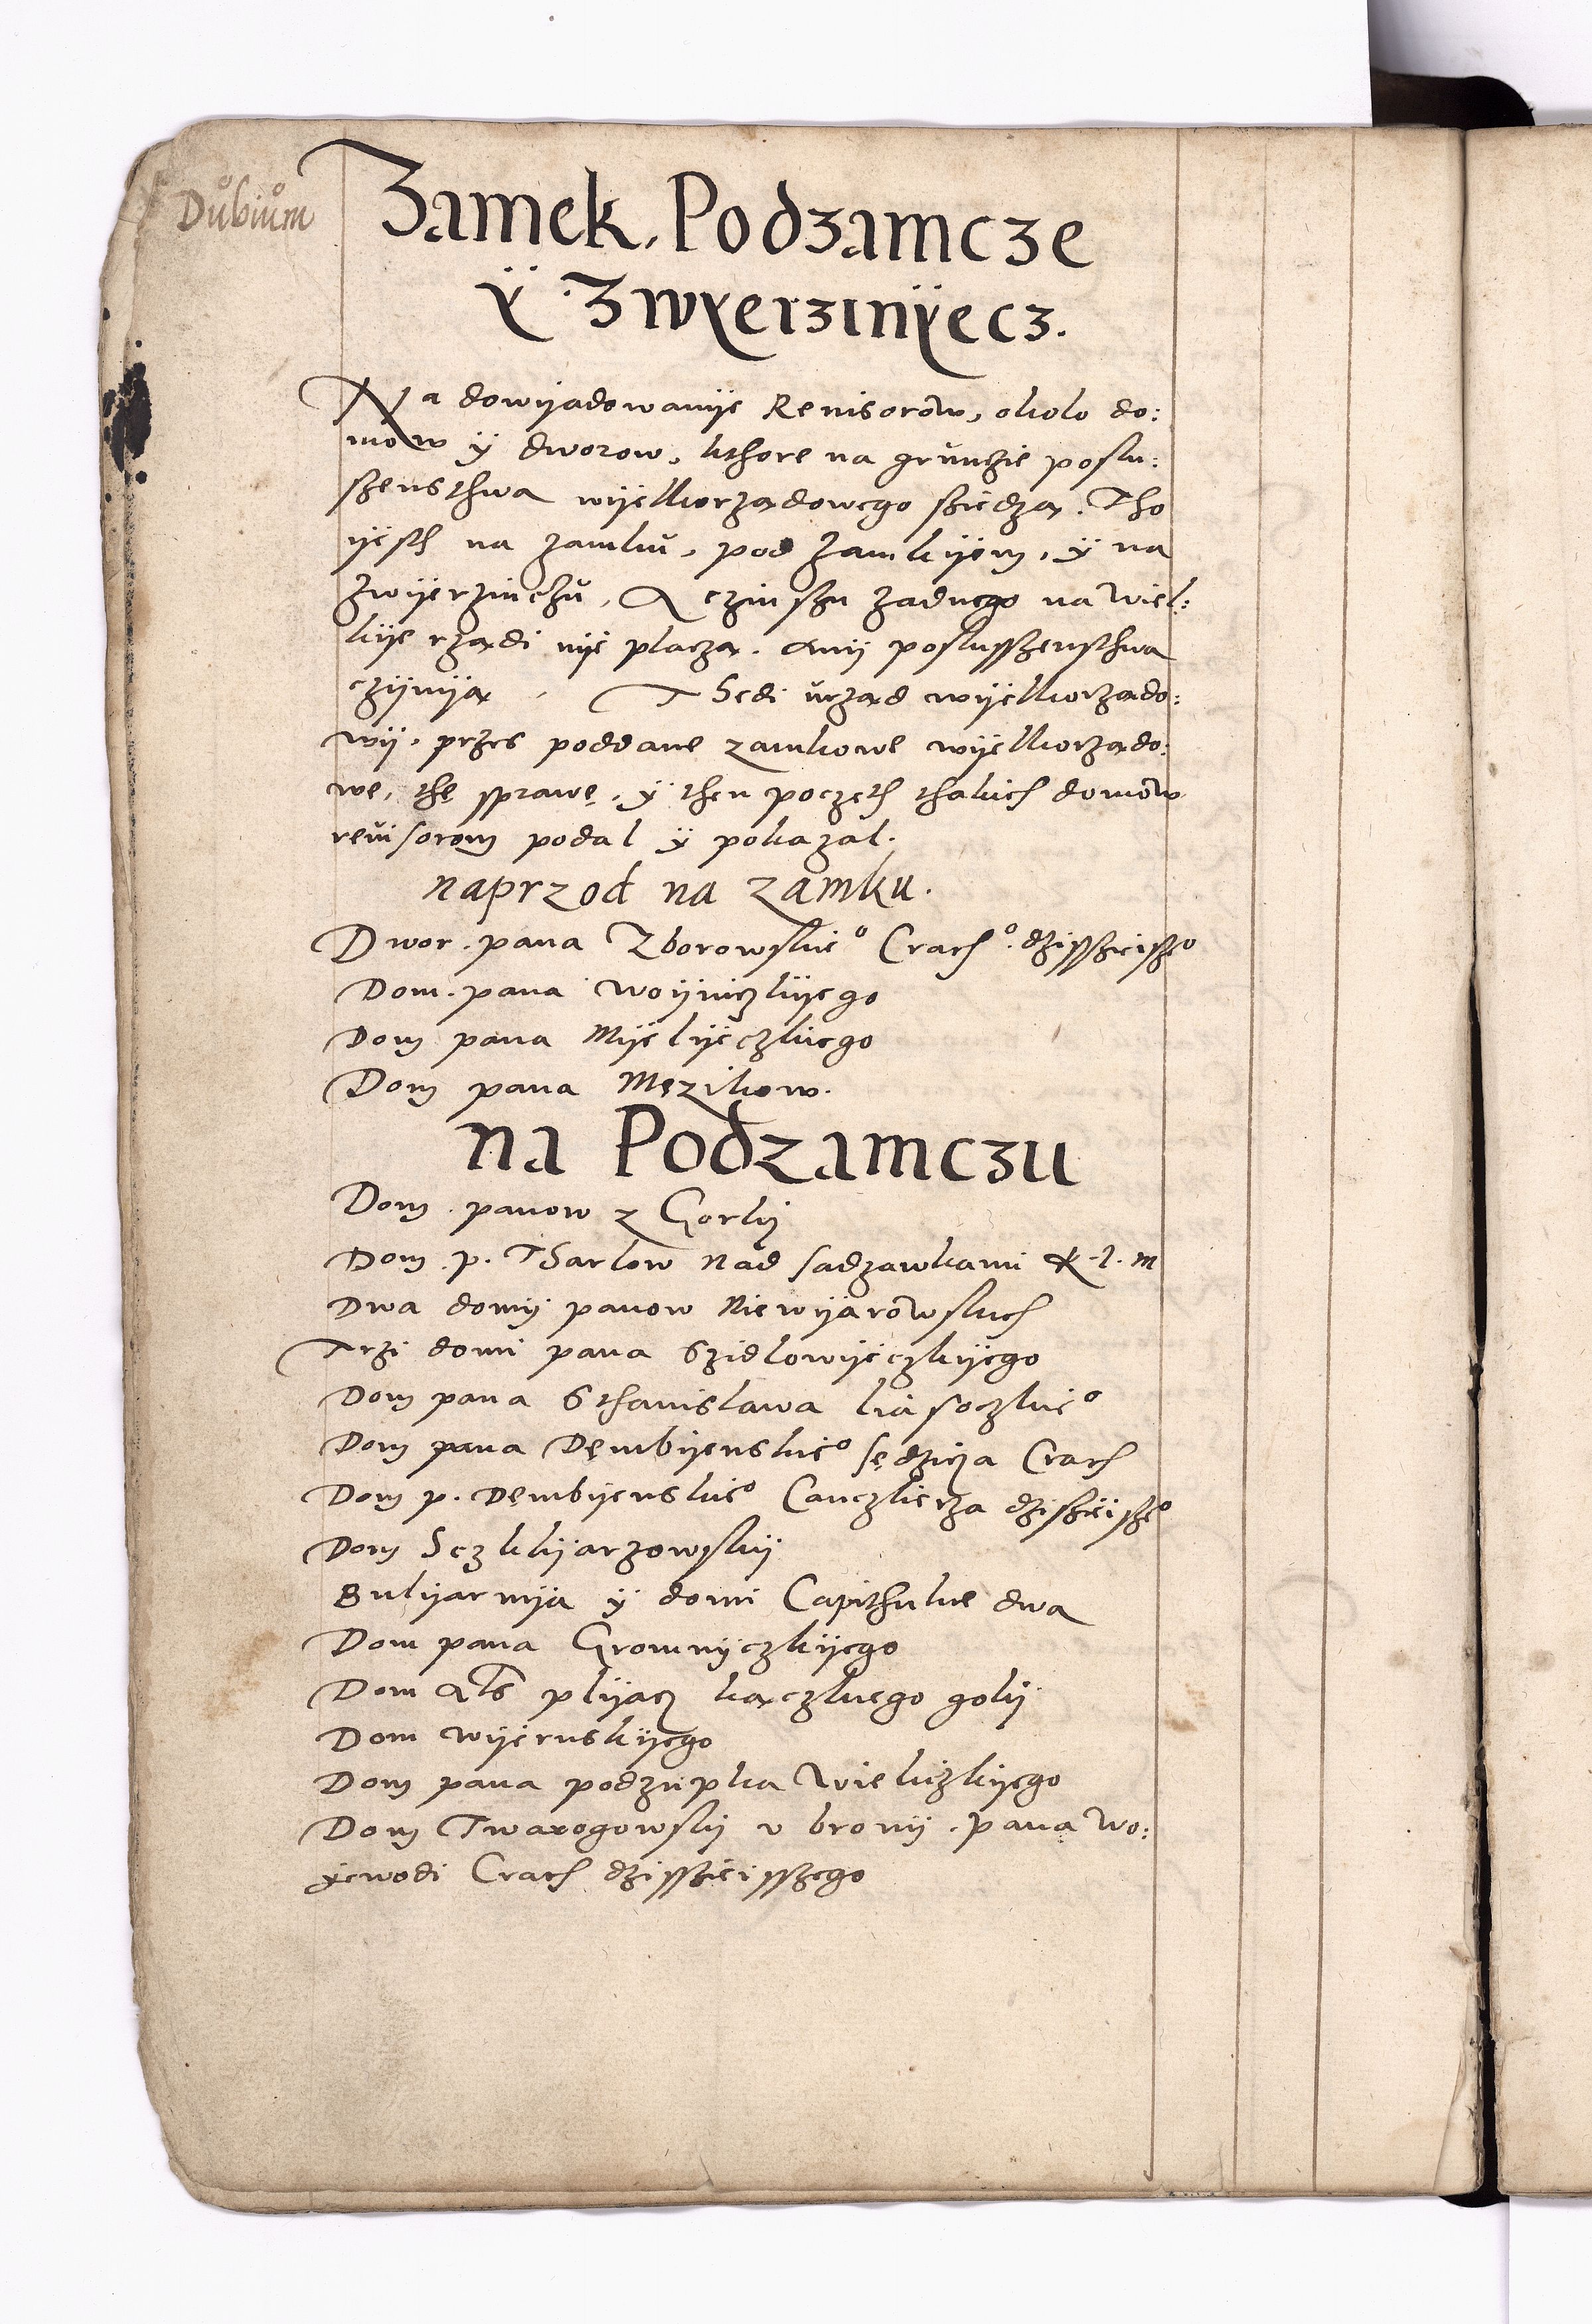 Dubium
Zamek, Podzamcze
ÿ Zwyerzinÿecz.
Na dowijadowanije Revisorow, okolo do:
mow ÿ dworow, kthore na grunczie poslu:
szensthwa wijelkorządowego sziedzą. Tho
ijesth na zamku, pod zamkijem, ÿ na
zwijerzinczu, A czinszu zadnego na wiel:
kije rządi nije placzą. anij poslusszensthwa
czijniją. Thedi urząd wijelkorządo:
wij, przes poddane zamkowe wijelkorządo:
we, thę sprawę, ÿ then poczeth thakich domow
revisorom podal ÿ pokazal.
naprzod na zamku.
Dwor. pana Zborowskieº Cracº. dzisszieiszº
Dom. pana woijniczkijego
Dom pana Mijelijeczkiego
Dom pana Męzikow.
na Podzamczu
Dom. panow z Gorkij
Dom. p. Tharlow nad sadzawkami K. J. m
Dwa domij panow Niewijarowskich
Trzi domi pana Szidlowijeczkijego
Dom pana Sthanislawa liasoczkieº
Dom pana Dembijenskieº sędzieja Crac
Dom p. Dembijenskieº Canczlierza dzisziejszº
Dom
Bulijarnija ÿ domi Capithulne dwa
Dom pana Gromnijczkijego
Dom als plijacz kączkiego golij
Dom wijeruskijego
Dom pana podzupka Wielickijego
Dom Twarogowskij u bronij. pana Wo:
jewodi Crac dzisszieisszego